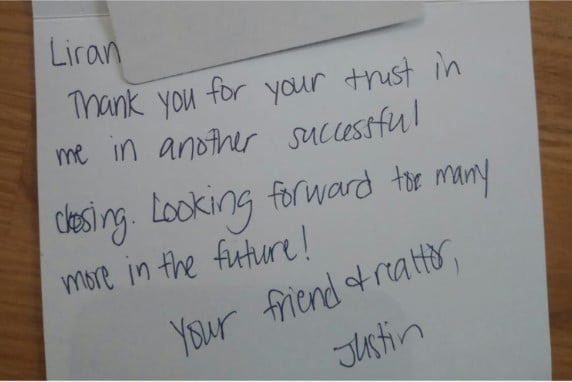 Liran
Thank you for your trust in
me in another successful
closing. Looking forward to many
more in the future!
Your friend & realtor,
Justin